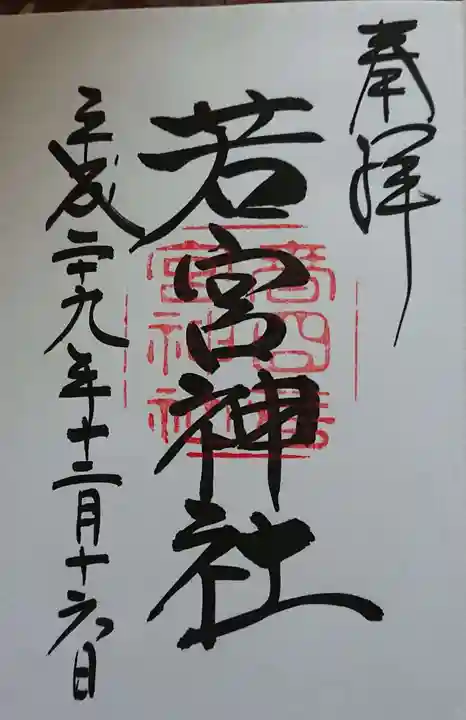 奉拝
若宮神社
宮神社
平成二十九年十二月十六日